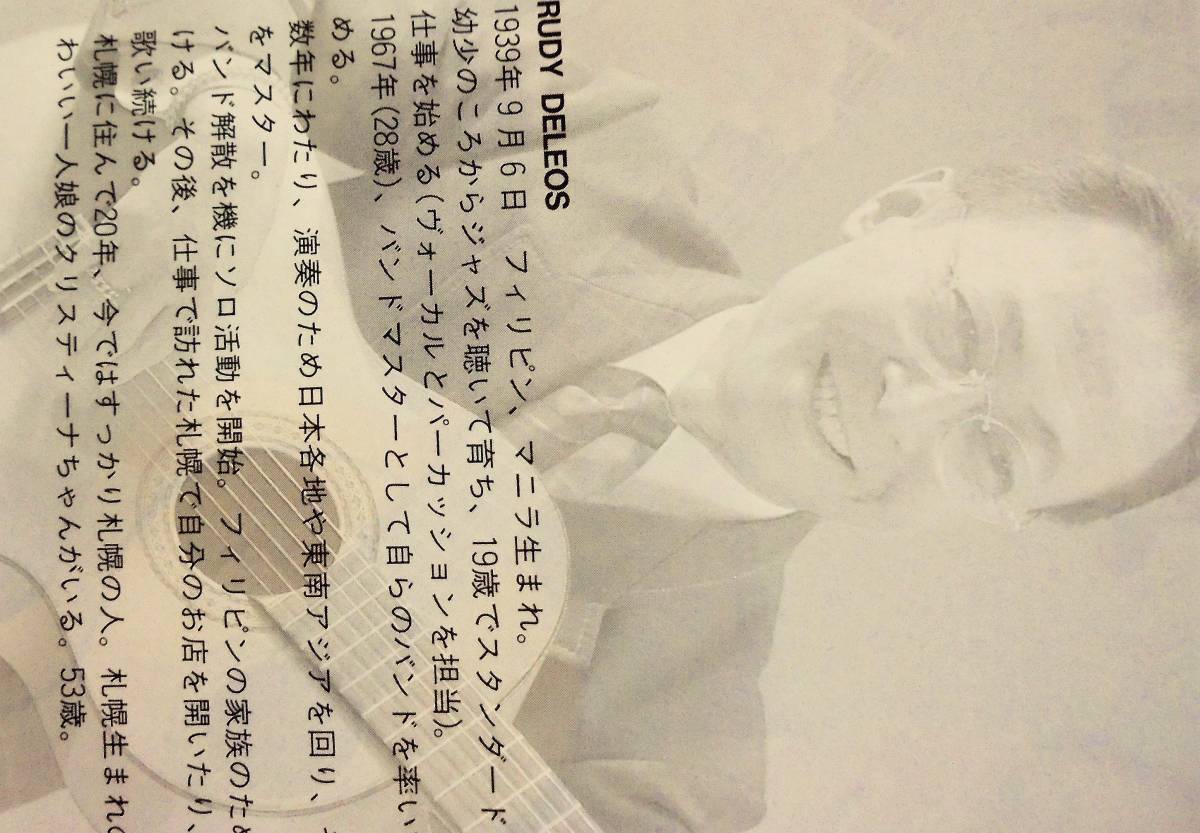 RUDY DELEOS
1939年9月6日　フィリピン、マニラ生まれ。
幼少のころからジャズを聴いて育ち、19歳でスタンダード
仕事を始める(ヴォーカルとパーカッションを担当)。
1967年(28歳)、バンドマスターとして自らのバンドを率い
める。
数年にわたり、演奏のため日本各地や東南アジアを回り、
をマスター。
バンド解散を機にソロ活動を開始。フィリピンの家族のため
ける。その後、仕事で訪れた札幌で自分のお店を開いたり、
歌い続ける。
札幌に住んで20年、今ではすっかり札幌の人。札幌生まれ
わいい一人娘のクリスティーナちゃんがいる。53歳。